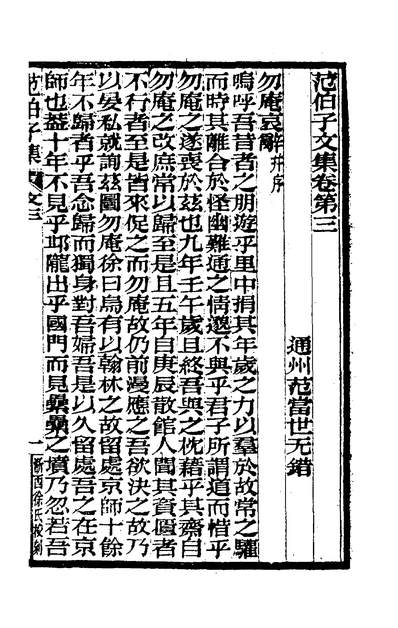 范伯子文集卷第三
通州范當世无錯
勿庵哀辭并序
嗚呼吾昔者之朋遊乎里中捐其年歲之力以羣於故常之驩
而時其離合於怪幽難通之情邈不與乎君子所謂道而惜乎
勿庵之遂喪於茲也九年壬午歲且終吾與之枕藉乎其齋自
勿庵之改庶常以歸至是且五年自庚辰散館人閒其貧匱者
不行者至是皆來促之而勿庵故仍前漫應之吾欲決之故乃
以晏私就詢茲圖勿庵徐曰烏有以翰林之故留處京師十餘
年不歸者乎吾念歸而獨身對吾婦吾是以久留處吾之在京
師也葢十年不見乎邱隴出乎國門而見纍纍之墳乃忽若吾
范伯子集
文三
一
浙西徐氏校刻